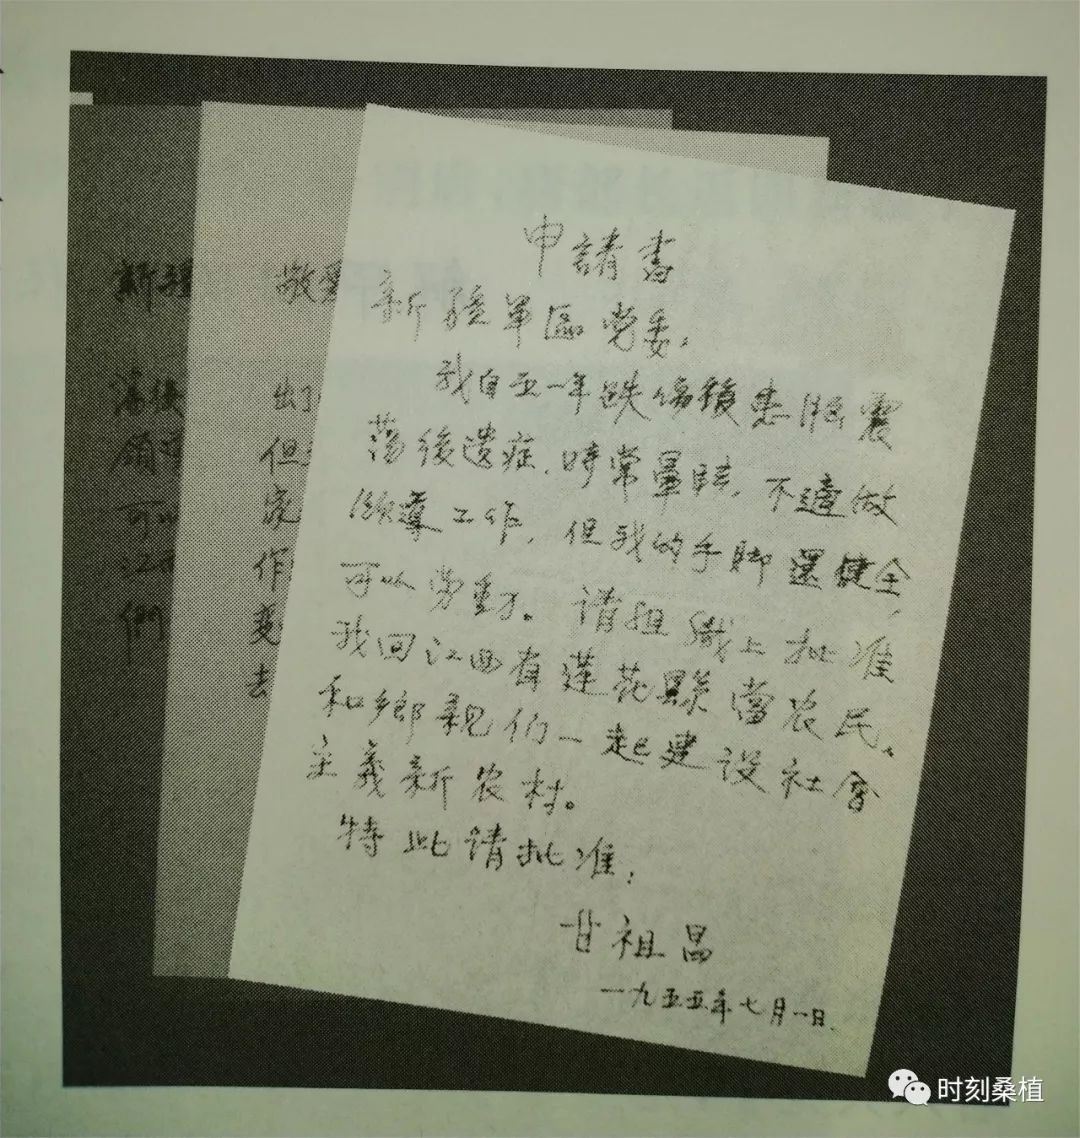 申請書
新疆軍區党委,
我自五一年跌傷後患脑震
荡後遗症.時常暈眩.不適做
领導工作,但我的手脚還健全,
可以劳動。请组織上批准
我回江西省莲花縣當农民、
和鄉親们一起建设社会
主義新农村。
特此请批准;
甘祖昌
一九五五年七月一日.
敬
出了
但
作
变
去
新
荡後
领
可以
們
时刻桑植